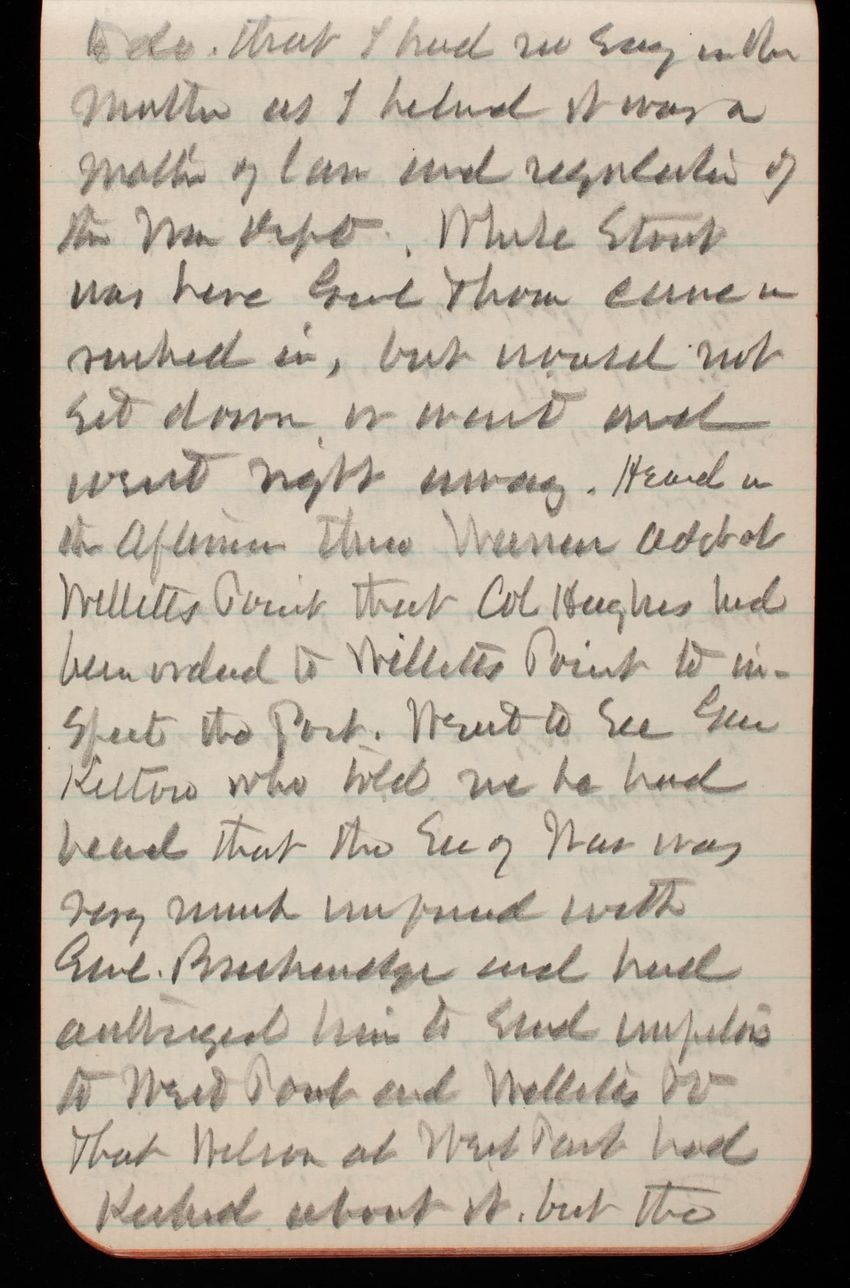 to do. that I had no say in the
matter as I belived it was a
matter of law and regulation of
the War Dept. While Stout
was here Genl Thom came in
rushed in, but would not
set down or wait and
went right away. Heard in
the afternoon thro Warren adjt at
Willetts Point that Col Hughes had
been ordered to Willetts Point to in-
spect the Post. Went to see Gen
Kelton who told me he had
heard that the Sec of War was
very much impressed with
Genl. Breckenridge and had
authorized him to send inspectors
to West Point and Willetts Pt
That Wilson at West Point had
Kicked about it. but the